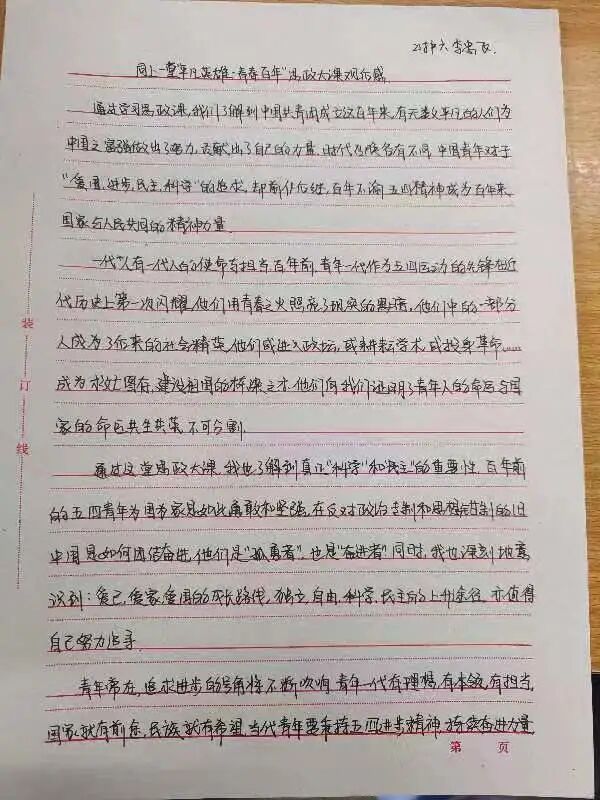 21护六 李
同上一堂"平凡英雄·青春百年"思政大课观后感
通过学习思政课,我们了解到中国共青团成立这百年来,有无数平凡的人们为
中国之富强做出了努力,贡献出了自己的力量.时代几番各有不同,中国青年对于
"爱国,进步,民主,科学"的追求,却前仆后继,百年不渝.五四精神成为百年来,
国家与人民共同的精神力量.
一代人有一代人的使命与担当.百年前,青年一代作为五四运动的先锋在近
代历史上第一次闪耀.他们用青春之火照亮了现实的黑暗,他们中的一部分
人成为了后来的社会精英,他们或进入政坛,或耕耘学术,或投身革命……
成为救亡图存,建设祖国的栋梁之才.他们向我们证明了青年人的命运与国
家的命运共生共荣,不可分割.
通过这堂思政大课,我也了解到真正"科学"和"民主"的重要性,百年前
的五四青年为国为家是如此勇敢和坚强,在反对政治专制和思想钳制的旧
中国是如何团结奋进,他们是"孤勇者",也是"奋进者".同时,我也深刻地意
识到:爱己,爱家,爱国的成长路径,独立,自由,科学,民主的上升途径,亦值得
自己努力追寻.
青年常在,追求进步的号角将不断吹响.青年一代有理想,有本领,有担当,
国家就有前途,民族就有希望.当代青年要秉持五四进步精神,持续奋进力量
装
订
线
第 页